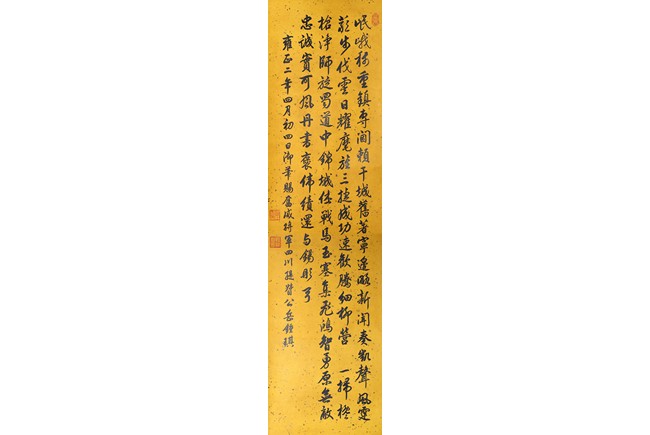 岷峨称重鎮專閫賴干城舊著寧遐略新聞奏凱聲風霆
嚴步伐雲日耀麾旌三捷成功速歡騰細柳營 一掃欃
槍淨師旋蜀道中錦城休戰馬玉塞集飛鴻智勇原無敵
忠誠實可風丹書褒偉績還與錫彤弓
雍正二年四月初四日御筆賜奮威將軍四川提督公岳鍾琪